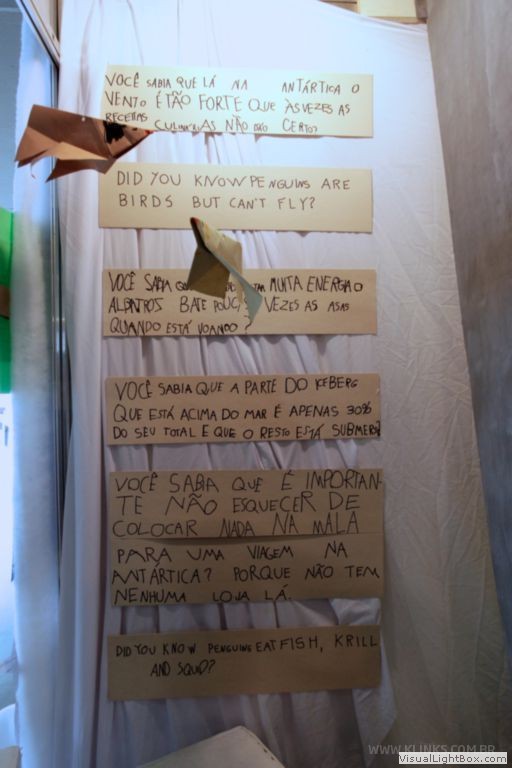 VOCÊ SABIA QUE LÁ NA ANTÁRTICA O
VENTO É TÃO FORTE QUE ÀS VEZES AS
RECEITAS NÃO CERTO?
DID YOU KNOW PENGUINS ARE
BIRDS BUT CAN'T FLY?
VOCÊ SABIA MUITA ENERGIA O
ALBATROS BATE VEZES AS ASAS
QUANDO ESTÁ VOANDO?
VOCÊ SABIA QUE A PARTE DO ICEBERG
QUE ESTÁ ACIMA DO MAR É APENAS 30%
DO SEU TOTAL E QUE O RESTO ESTÁ
VOCÊ SABIA QUE É IMPORTAN-
TE NÃO ESQUECER DE
COLOCAR NADA NA MALA
PARA UMA VIAGEM NA
ANTÁRTICA? PORQUE NÃO TEM
NENHUMA LOJA LÁ.
DID YOU KNOW PENGUINS EAT FISH, KRILL
AND SQUID?
WWW.KLINKS.COM.BR
VisualLightBox.com